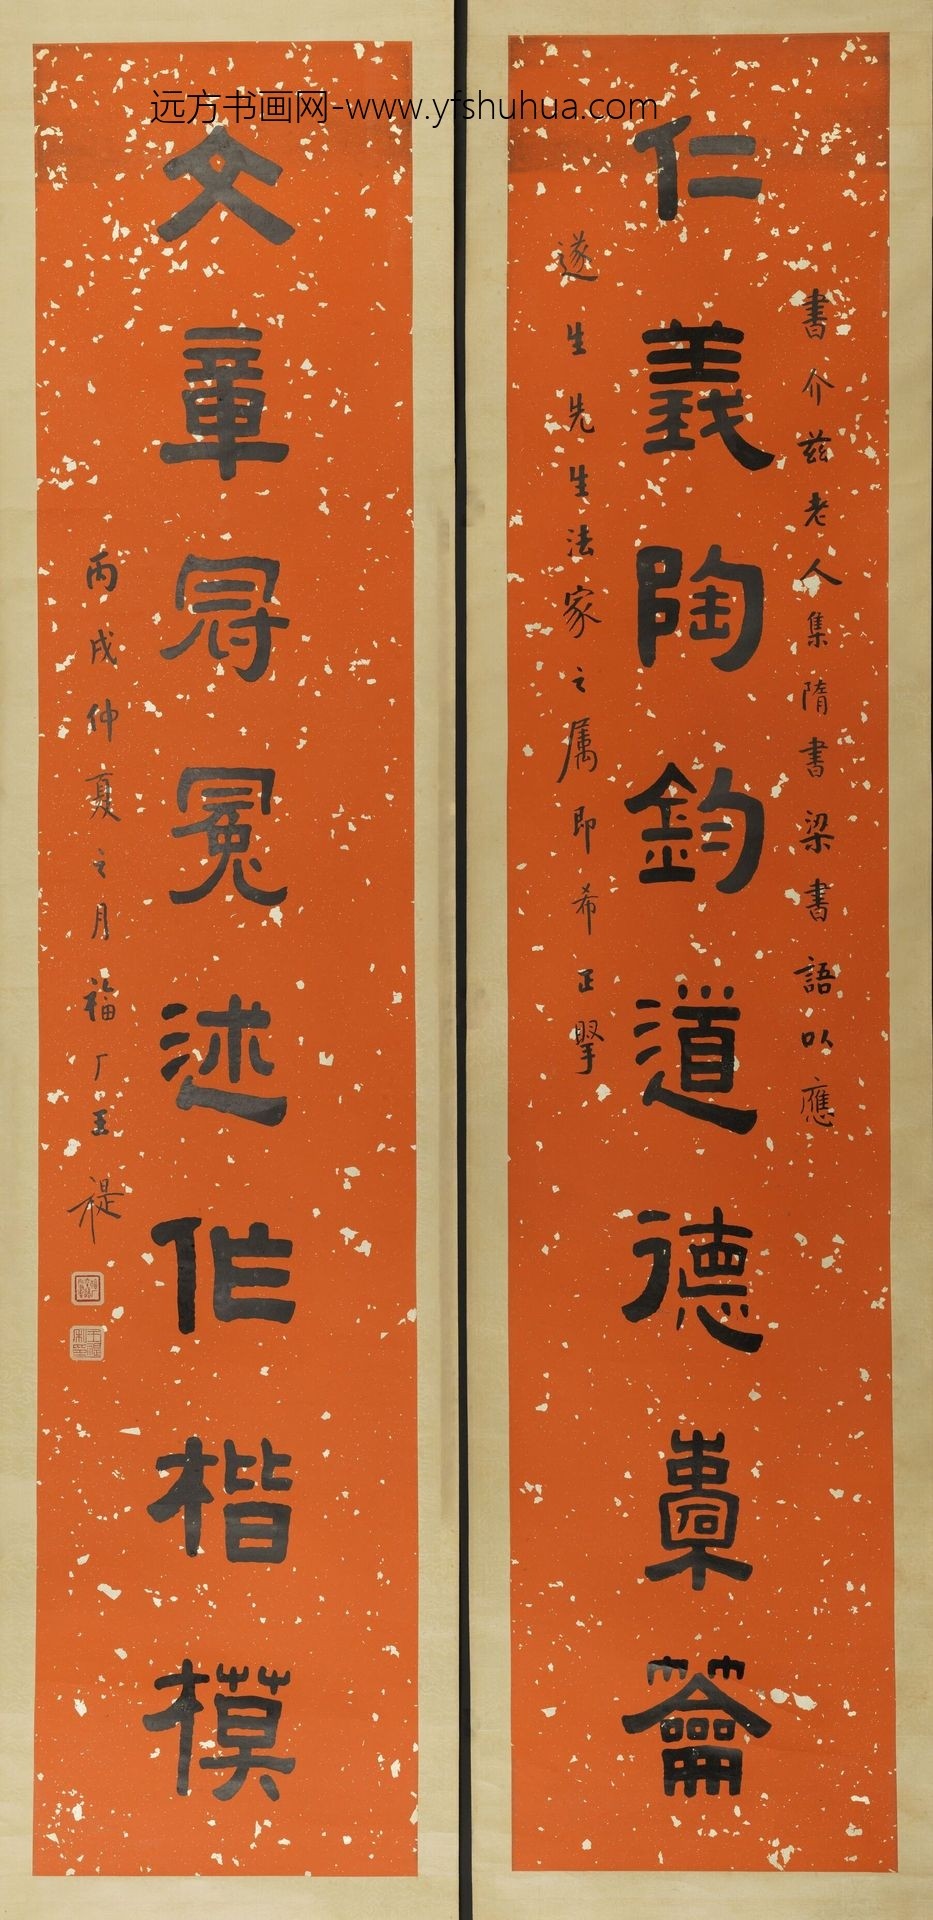 远方书画网-www.yfshuhua.com
書介茲老人集隋書梁書語以應
仁義陶鈞道德橐籥
遂生先生法家之属即希正擥
文章冠冕述作楷模
丙戌仲夏之月福厂王禔
王禔